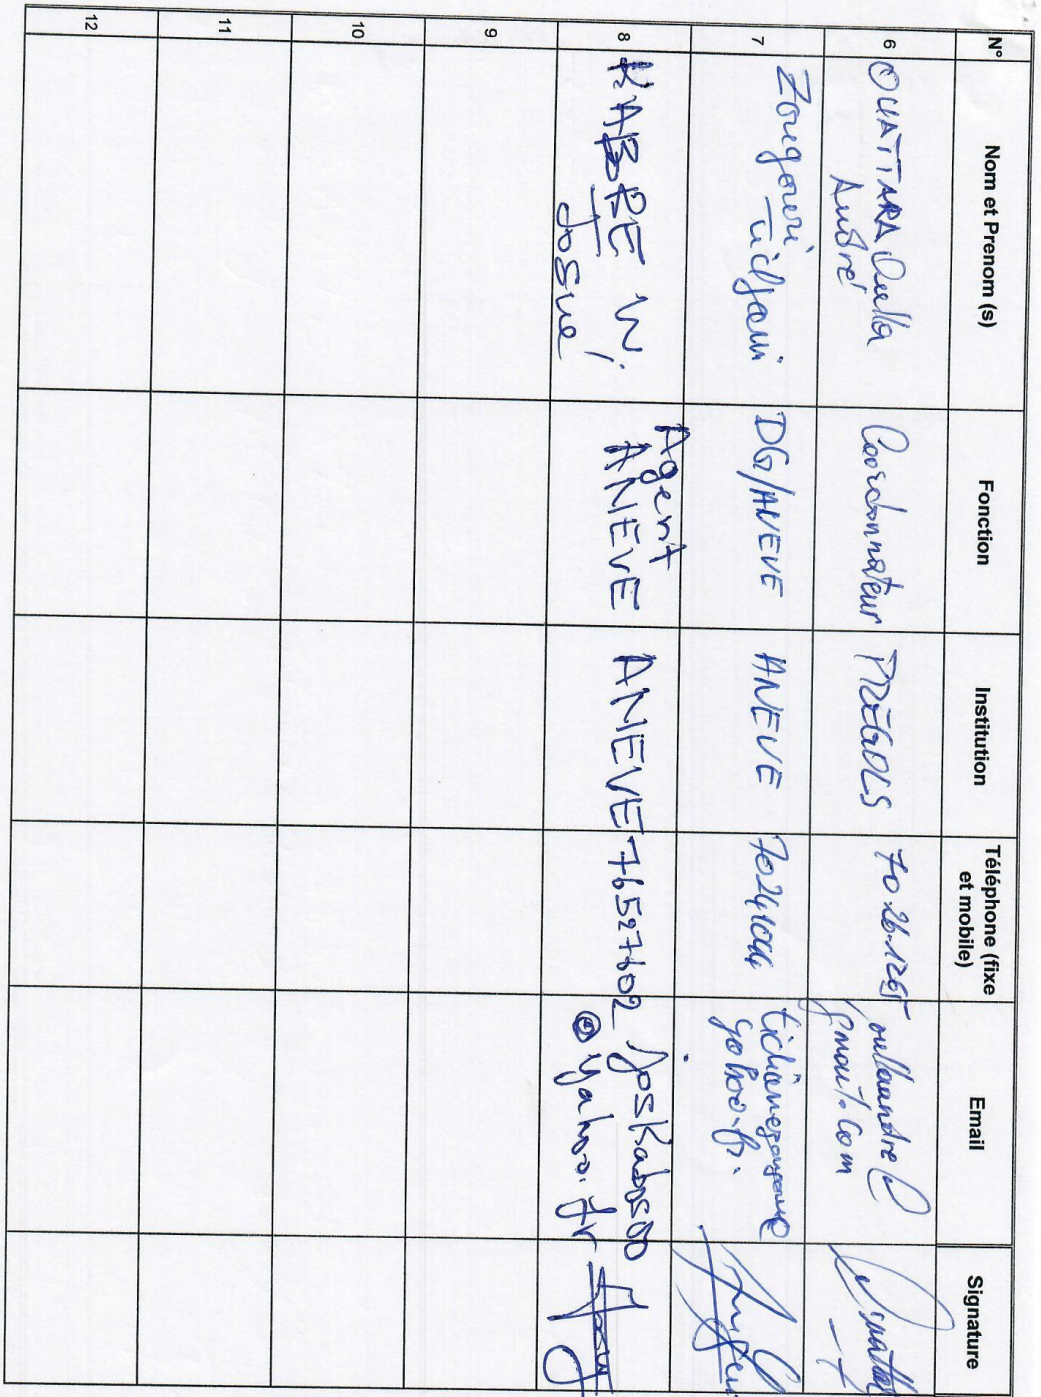 N° Nom et Prenom (s) Fonction Institution Téléphone (fixe et mobile) Email Signature
6 OUATTARA Oulla André Coordonnateur 70 26 1265 oullaandre@gmail.com
7 Zougouri Tidjani DG/ANEVE ANEVE
8 KABRE W. Josué Agent ANEVE ANEVE 76527602 @yahoo.fr
9
10
11
12